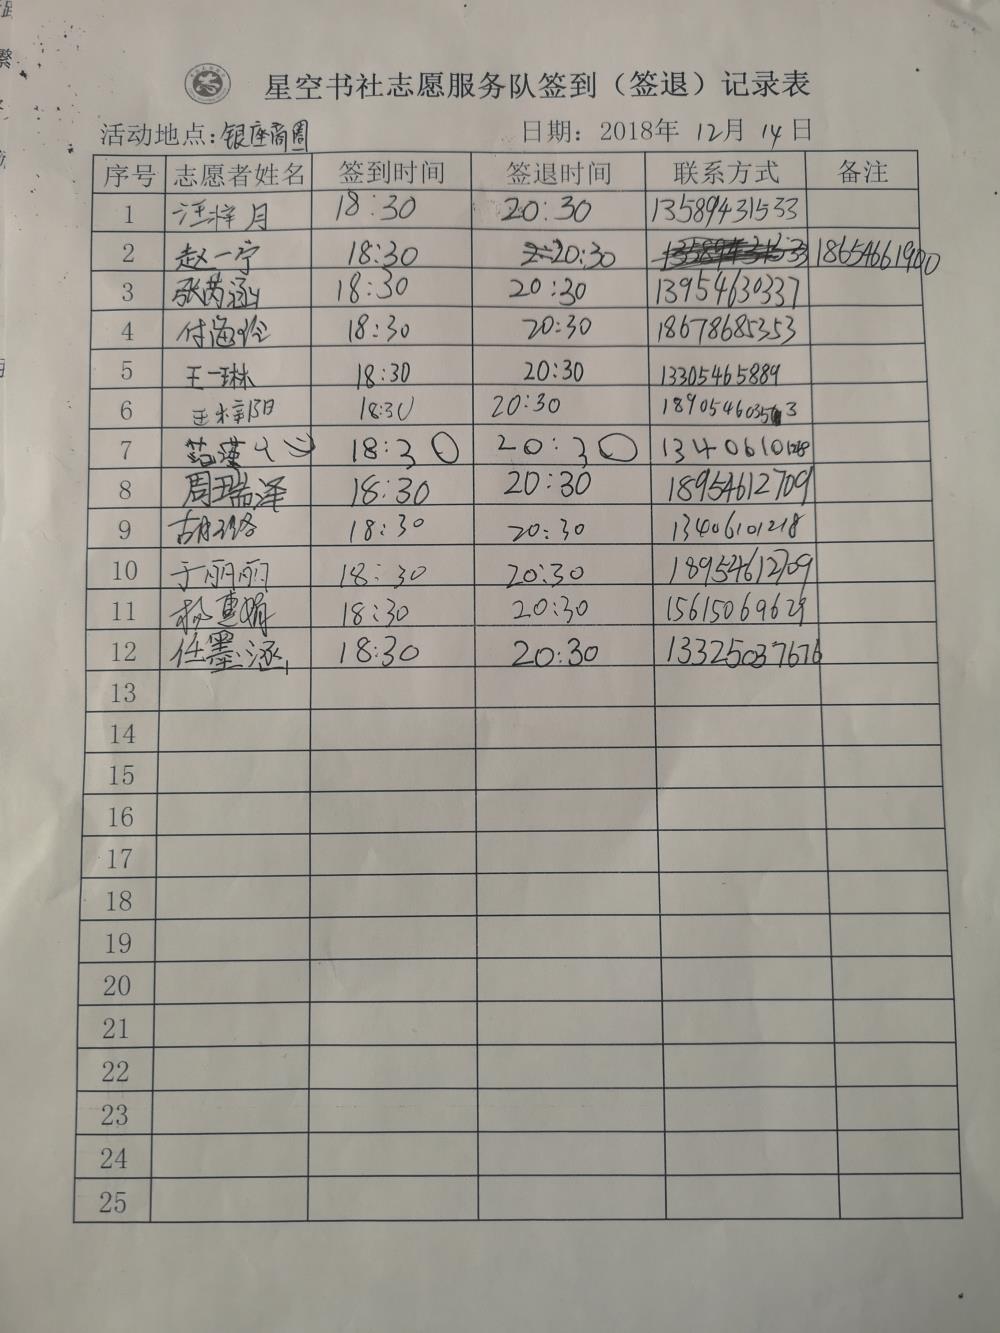 星空书社志愿服务队签到（签退）记录表
活动地点：银座商圈 日期：2018年 12月 14日
序号 志愿者姓名 签到时间 签退时间 联系方式 备注
1 汪梓月 18:30 20:30 13589431533
2 赵一宁 18:30 20:30 18654661900
3 张芮涵 18:30 20:30 13954630337
4 付海玲 18:30 20:30 18678685353
5 王一琳 18:30 20:30 13305465889
6 王梓阳 18:30 20:30
7 18:30 20:30
8 周瑞泽 18:30 20:30 18954612709
9 18:30 20:30 13406101218
10 于丽丽 18:30 20:30 18954612709
11 18:30 20:30 15615069629
12 任墨涵 18:30 20:30 13325037676
13
14
15
16
17
18
19
20
21
22
23
24
25